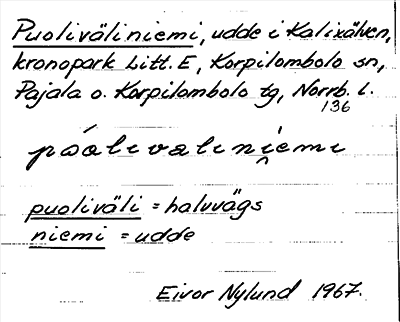 Puoliväliniemi, udde i Kalixälven,
kronopark Litt. E, Korpilombolo sn,
Pajala o. Korpilombolo tg, Norrb. l.
136
póalivaliniemi
puoliväli = halvvägs
niemi = udde
Eivor Nylund 1967.